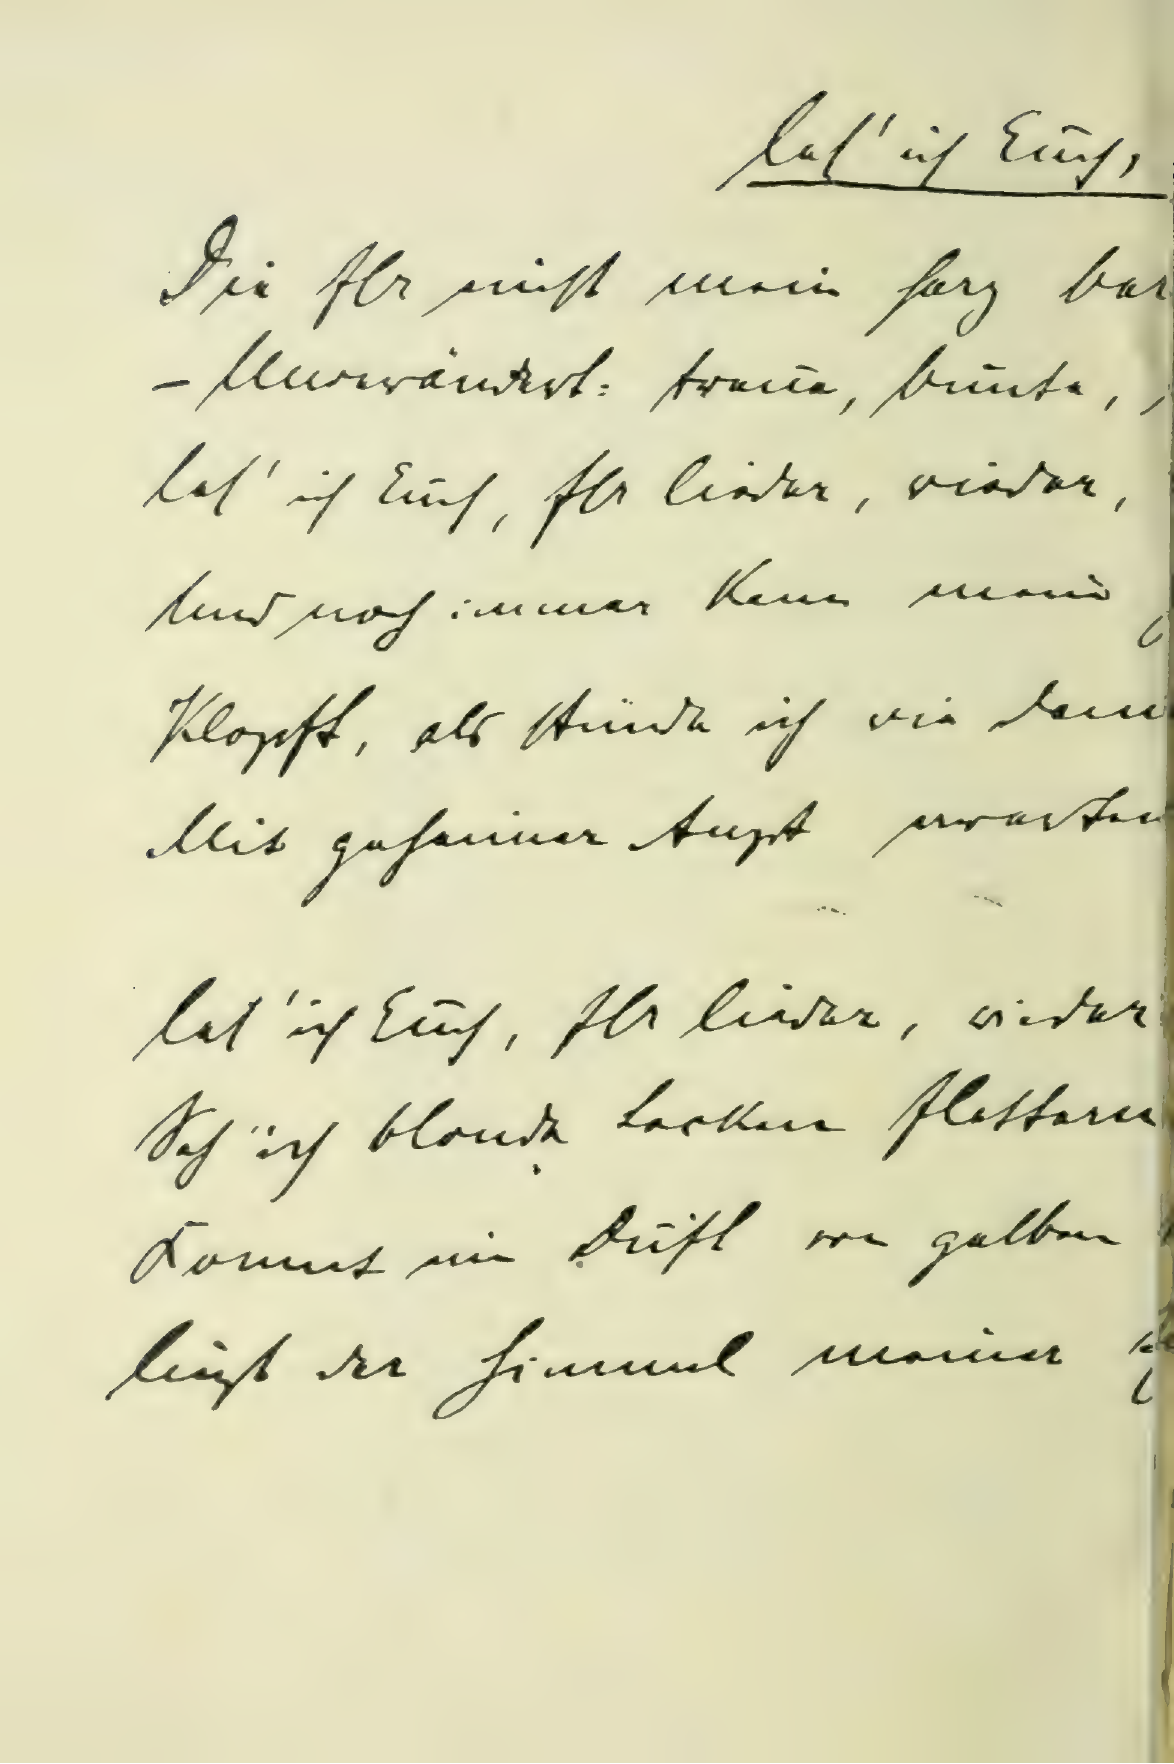 Les' ich Euch,
Die Ihr einst mein Herz
– Unverändert: treue, bunte,
Les' ich Euch, Ihr Lieder, wieder,
Und noch immer kann mein
Klopft, als stünde ich wie dam
Mit geheimer Angst erwarten
Les' ich Euch, Ihr Lieder, wieder
Seh' ich blonde Locken flattern
Kommt ein Duft von gelben
Liegt der Himmel meiner